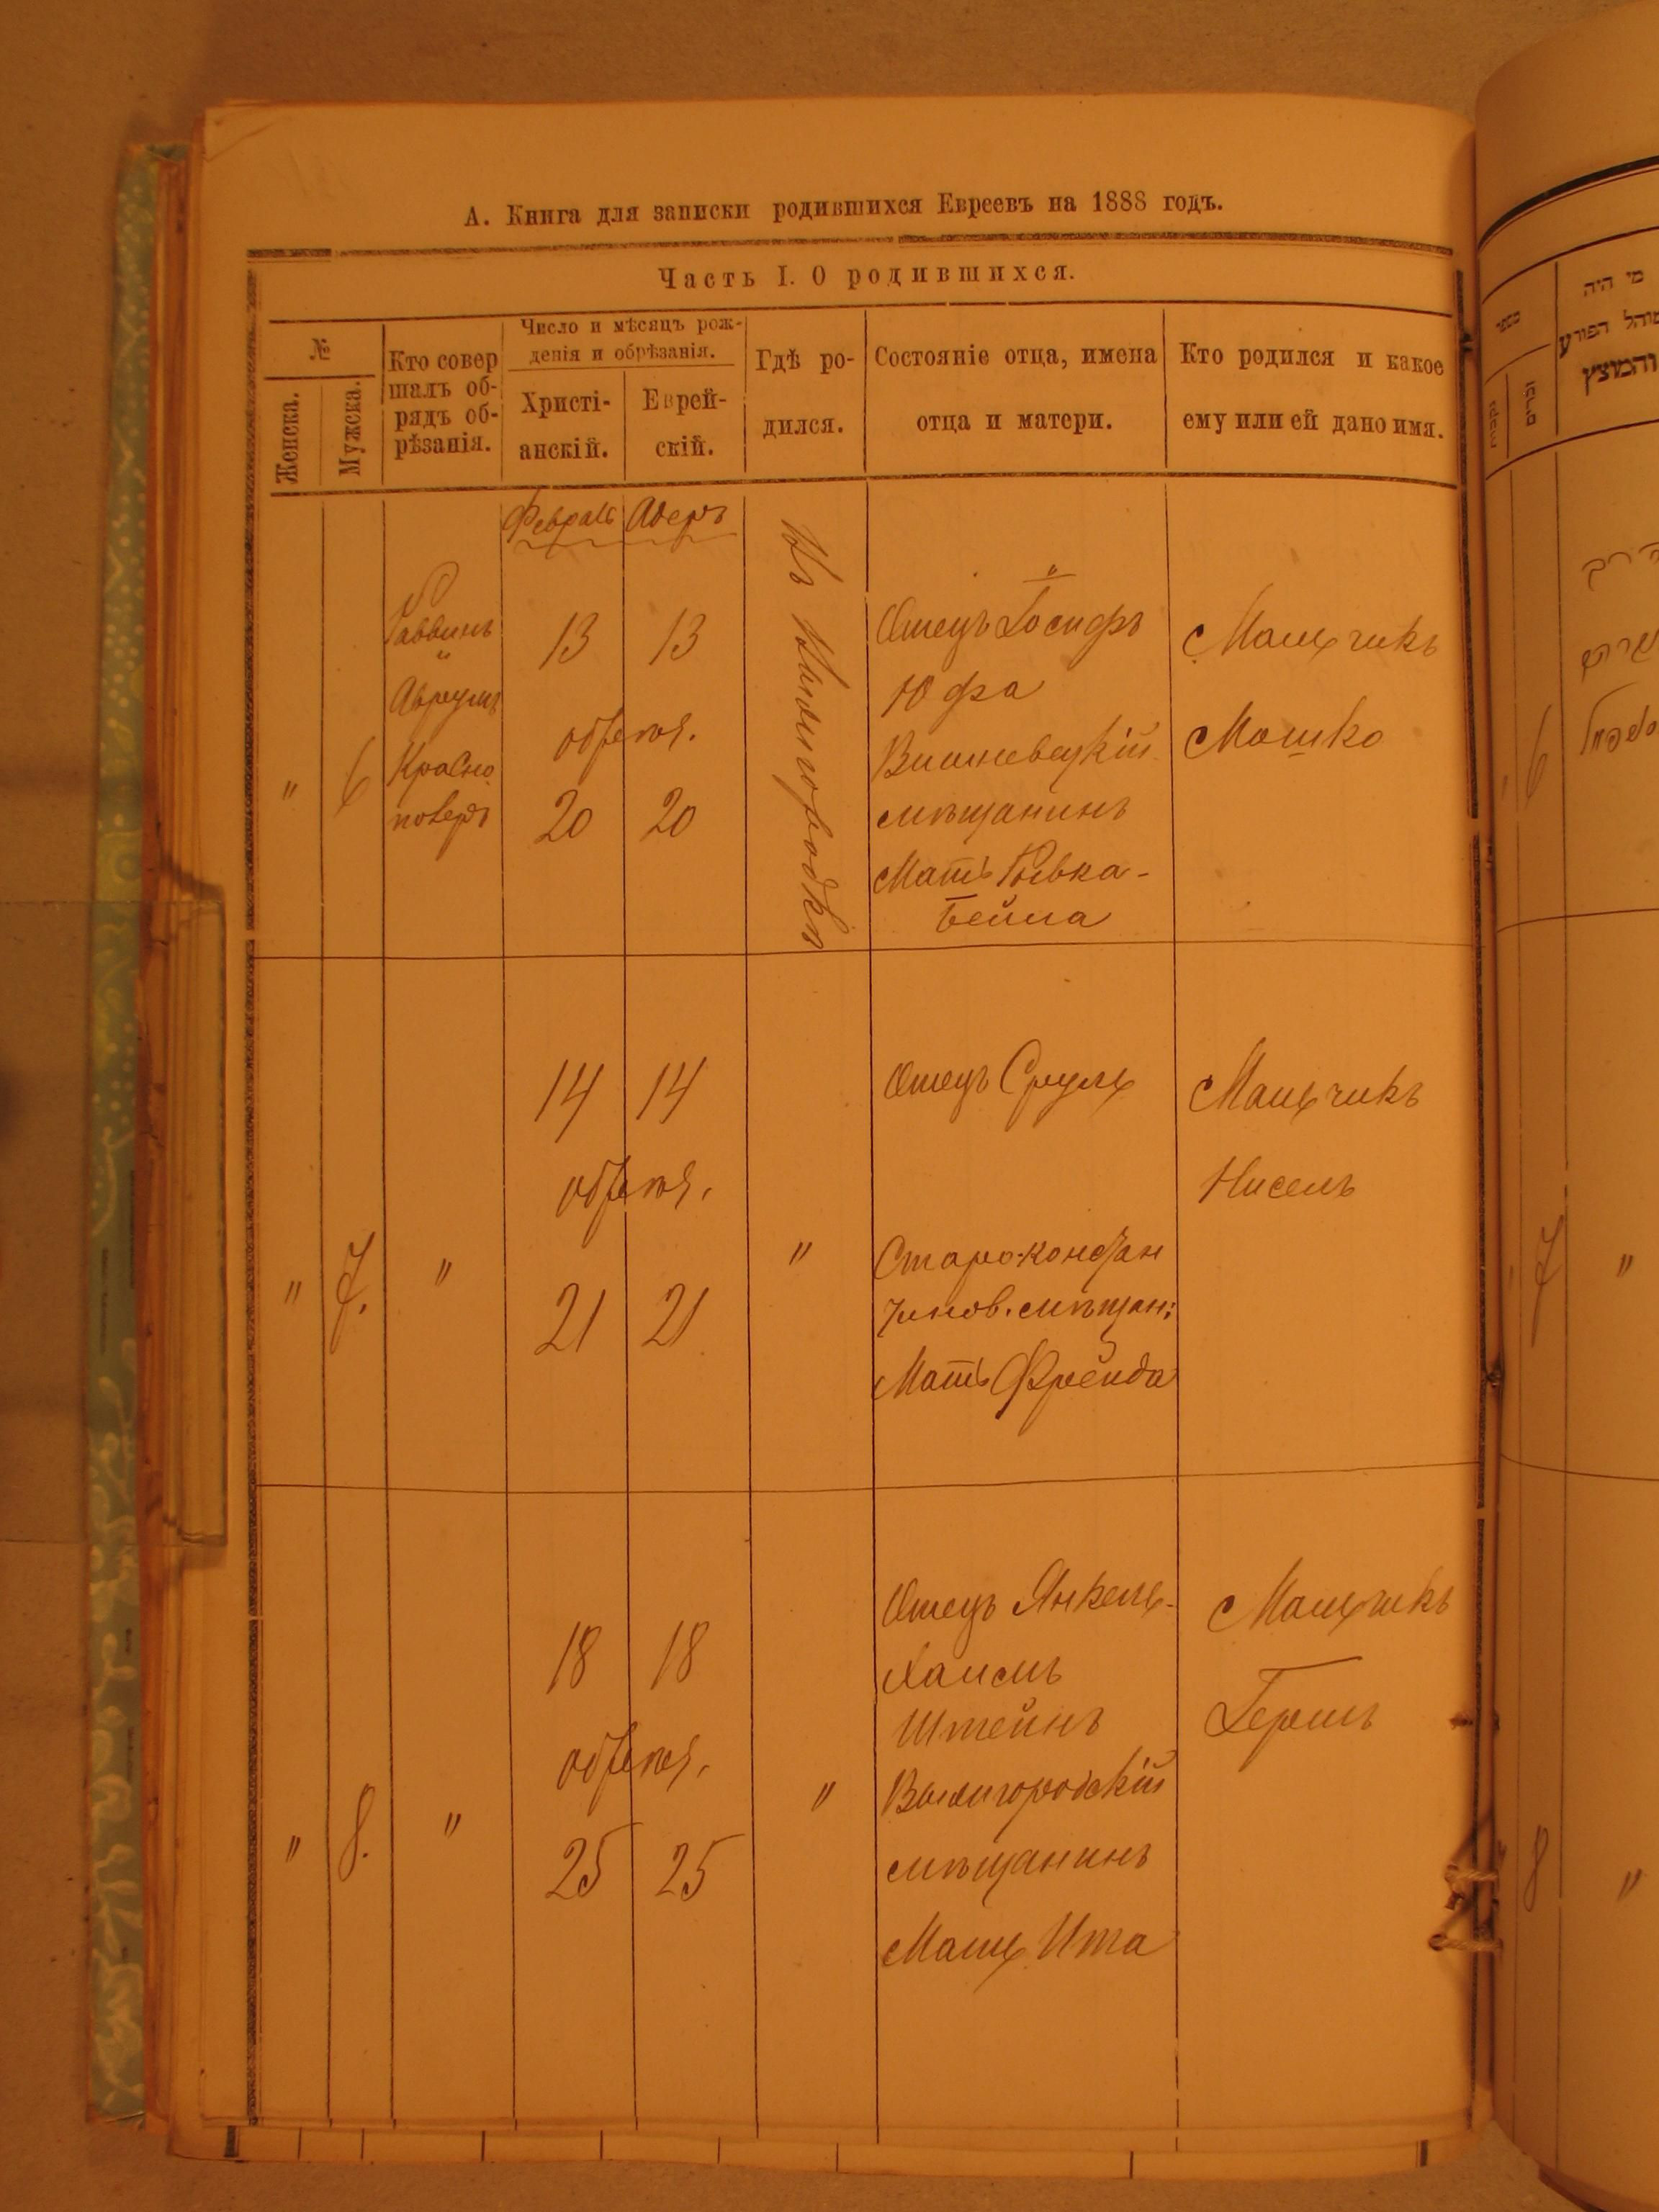 А. Книга для записки родившихся Евреевъ на 1888 годъ.
Часть I. О родившихся.
№
Женска.
Мужска.
Кто совер
шалъ об-
рядъ об-
рѣзанія.
Число и мѣсяцъ рож-
денія и обрѣзанія.
Христі-
анскій.
Еврей-
скій.
Гдѣ ро-
дился.
Состояніе отца, имена
отца и матери.
Кто родился и какое
ему или ей дано имя.
Февраль Адеръ
"
6
Раввинъ
"
Аврумъ
Красно
13 13
20 20
"
Отецъ Іосифъ
Юфа
Вишневецкій
мѣщанинъ
Мать Ривка-
Бейла
Мальчикъ
Мошко
"
7.
"
14 14
21 21
"
Отецъ Сруль
Старо-констан
тинов. мѣщан:
Мать Фрейда
Мальчикъ
Нисель
"
8.
"
18 18
25 25
"
Отецъ Янкель-
Хаимъ
Штейнъ
мѣщанинъ
Мать Ита
Мальчикъ
Гершъ
מי היה
מספר
נקבות
זכרים
והמוצץ
6
7
"
8
"